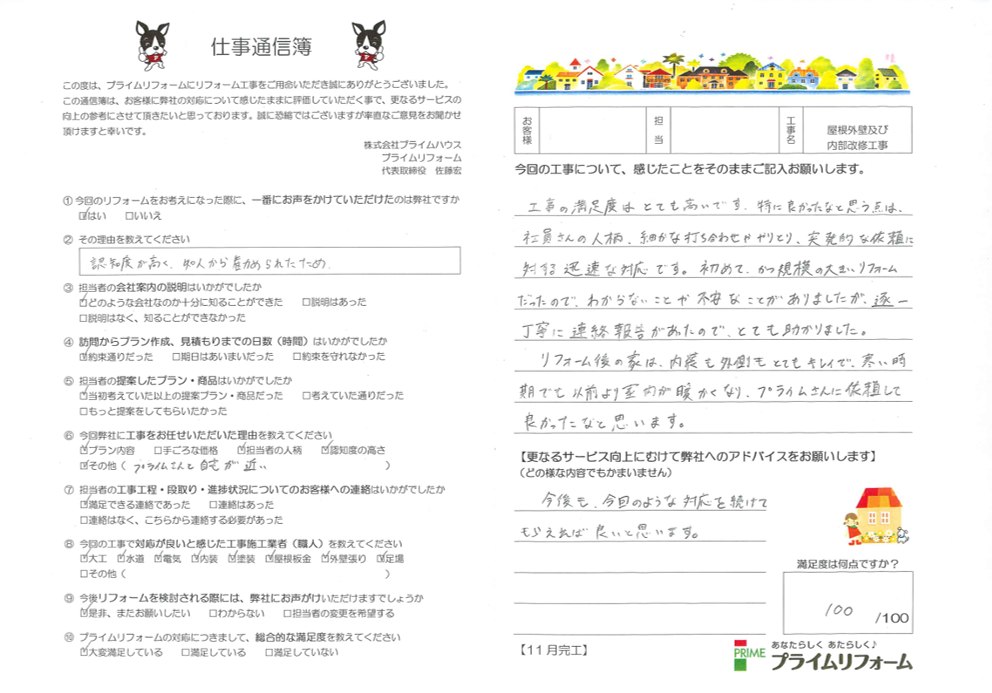 仕事通信簿
この度は、プライムリフォームにリフォーム工事をご用命いただき誠にありがとうございました。
この通信簿は、お客様に弊社の対応について感じたままに評価していただく事で、更なるサービスの
向上の参考にさせて頂きたいと思っております。誠に恐縮ではございますが率直なご意見をお聞かせ
頂けますと幸いです。
株式会社プライムハウス
プライムリフォーム
代表取締役 佐藤宏
① 今回のリフォームをお考えになった際に、一番にお声をかけていただけたのは弊社ですか
☑はい □いいえ
② その理由を教えてください
認知度が高く、知人から勧められたため。
③ 担当者の会社案内の説明はいかがでしたか
☑どのような会社なのか十分に知ることができた □説明はあった
□説明はなく、知ることができなかった
④ 訪問からプラン作成、見積もりまでの日数（時間）はいかがでしたか
☑約束通りだった □期日はあいまいだった □約束を守れなかった
⑤ 担当者の提案したプラン・商品はいかがでしたか
☑当初考えていた以上の提案プラン・商品だった □考えていた通りだった
□もっと提案をしてもらいたかった
⑥ 今回弊社に工事をお任せいただいた理由を教えてください
☑プラン内容 □手ごろな価格 ☑担当者の人柄 ☑認知度の高さ
☑その他（ プライムさんと自宅が近い ）
⑦ 担当者の工事工程・段取り・進捗状況についてのお客様への連絡はいかがでしたか
☑満足できる連絡であった □連絡はあった
□連絡はなく、こちらから連絡する必要があった
⑧ 今回の工事で対応が良いと感じた工事施工業者（職人）を教えてください
☑大工 ☑水道 ☑電気 ☑内装 ☑塗装 ☑屋根板金 ☑外壁張り ☑足場
□その他（ ）
⑨ 今後リフォームを検討される際には、弊社にお声がけいただけますでしょうか
☑是非、またお願いしたい □わからない □担当者の変更を希望する
⑩ プライムリフォームの対応につきまして、総合的な満足度を教えてください
☑大変満足している □満足している □満足していない
お客様 担当 工事名 屋根外壁及び
内部改修工事
今回の工事について、感じたことをそのままご記入お願いします。
工事の満足度はとても高いです。特に良かったなと思う点は、
社員さんの人柄、細かな打ち合わせややりとり、突発的な依頼に
対する迅速な対応です。初めて、かつ規模の大きいリフォーム
だったので、わからないことや不安なことがありましたが、逐一
丁寧に連絡報告があったので、とても助かりました。
リフォーム後の家は、内装も外側もとてもキレイで、寒い時
期でも以前より室内が暖かくなり、プライムさんに依頼して
良かったなと思います。
【更なるサービス向上にむけて弊社へのアドバイスをお願いします】
（どの様な内容でもかまいません）
今後も、今回のような対応を続けて
もらえれば良いと思います。
満足度は何点ですか？
100 /100
【11月完工】
PRIME あなたらしく あたらしく♪
プライムリフォーム